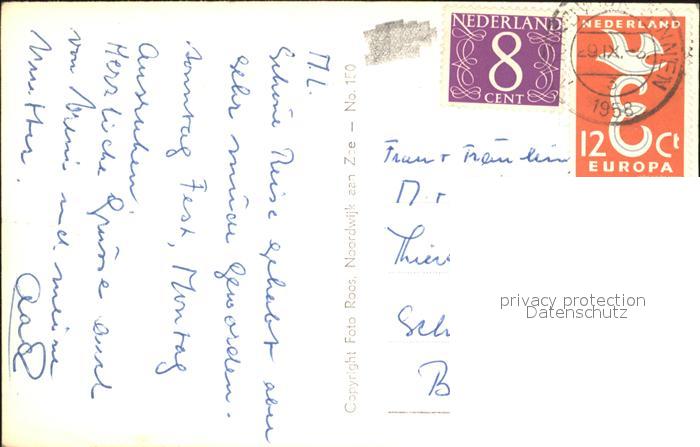 M. L.
Schöne Reise gehabt aber
sehr müde geworden.
Sonntag Fest, Montag
Ausruhen.
Herzliche Grüsse auch
von Wenis und meine
Mutter.
Copyright Foto Roos, Noordwijk aan Zee — No. 150
NEDERLAND
8
CENT
NEDERLAND
12 Ct
EUROPA
29.IX.
1958
Frau + Fräulein
M. +
Thier
Sch
B
privacy protection
Datenschutz